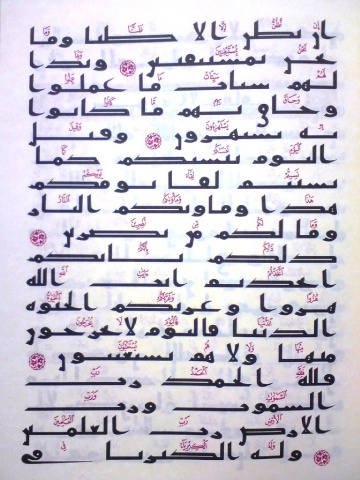 ان نظن الا ظنا وما
نحن بمستيقنين وبدا
لهم سيات ما عملوا
وحاق بهم ما كانوا
به يستهزون وقيل
اليوم ننسيكم كما
نسيتم لقا يومكم
هذا وماويكم النار
وما لكم من نصرين
ذلكم بانكم
اتخذتم ايت الله
هزوا وغرتكم الحيوه
الدنيا فاليوم لا يخرجون
منها ولا هم يستعتبون
فلله الحمد رب
السموت ورب
الارض رب العلمين
وله الكبريا في